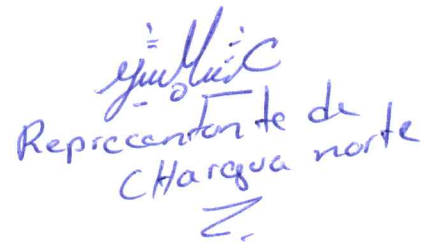 Reprecentante de
CHaragua norte
Z.